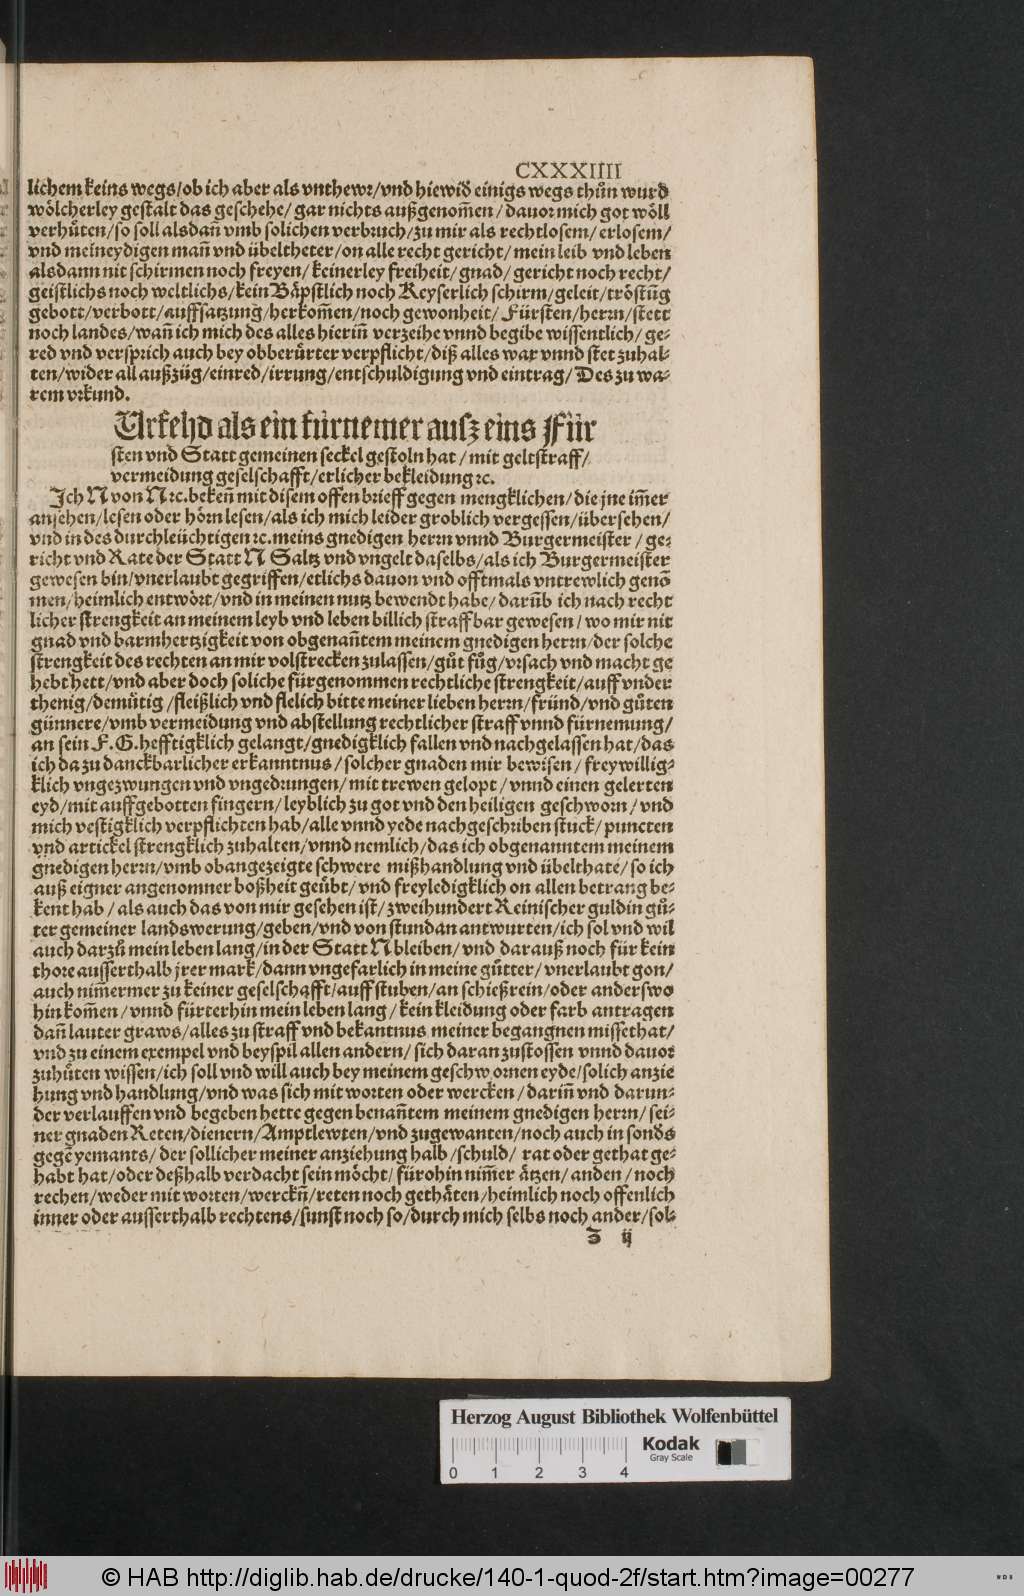 CXXXIIII
lichem keins wegs/ob ich aber als vnthewr/vnd hiewid̃ einigs wegs thůn wurd
wölcherley gestalt das geschehe/ gar nichts außgenom̃en/ dauor mich got wöll
verhůten/so soll alsdañ vmb solichen verbruch/zu mir als rechtlosem/ erlosem/
vnd meineydigen mañ vnd übeltheter/on alle recht gericht/mein leib vnd leben
alsdann nit schirmen noch freyen/ keinerley freiheit/gnad/ gericht noch recht/
geistlichs noch weltlichs/kein Bäpstlich noch Keyserlich schirm/geleit/tröstũg
gebott/verbott/auffsatzung/herkom̃en/noch gewonheit/ Fürsten/herrn/stett
noch landes/wañ ich mich des alles hieriñ verzeihe vnnd begibe wissentlich/ ge⸗
red vnd versprich auch bey obberůrter verpflicht/diß alles war vnnd stet zuhal⸗
ten/wider all außzüg/einred/irrung/entschuldigung vnd eintrag/ Des zu wa⸗
rem vrkund.
Urfehd als ein fürnemer ausz eins Für
sten vnd Statt gemeinen seckel gestoln hat/mit geltstraff/
vermeidung geselschafft/erlicher bekleidung ꝛc.
Ich N von N ꝛc. bekeñ mit disem offen brieff gegen mengklichen/die jne im̃er
ansehen/lesen oder hörn lesen/als ich mich leider groblich vergessen/übersehen/
vnd in des durchleüchtigen ꝛc. meins gnedigen herrn vnnd Burgermeister/ ge⸗
richt vnd Rate der Statt N Saltz vnd vngelt daselbs/als ich Burgermeister
gewesen bin/vnerlaubt gegriffen/etlichs dauon vnd offtmals vntrewlich genõ
men/heimlich entwört/vnd in meinen nutz bewendt habe/ darũb ich nach recht
licher strengkeit an meinem leyb vnd leben billich straffbar gewesen/wo mir nit
gnad vnd barmhertzigkeit von obgenañtem meinem gnedigen herrn/der solche
strengkeit des rechten an mir volstrecken zulassen/gůt fůg/vrsach vnd macht ge
hebt hett/vnd aber doch soliche fürgenommen rechtliche strengkeit/auff vnder
thenig/demütig/fleißlich vnd flelich bitte meiner lieben herrn/fründ/vnd gůten
günnere/vmb vermeidung vnd abstellung rechtlicher straff vnnd fürnemung/
an sein F. G. hefftigklich gelangt/gnedigklich fallen vnd nachgelassen hat/das
ich da zu danckbarlicher erkanntnus/solcher gnaden mir bewisen/freywillig⸗
klich vngezwungen vnd vngedrungen/mit trewen gelopt/vnnd einen gelerten
eyd/mit auffgebotten fingern/leyblich zu got vnd den heiligen geschworn/vnd
mich vestigklich verpflichten hab/alle vnnd yede nachgeschriben stuck/puncten
vnd artickel strengklich zuhalten/vnnd nemlich/das ich obgenanntem meinem
gnedigen herrn/vmb obangezeigte schwere mißhandlung vnd übelthate/so ich
auß eigner angenomner boßheit geůbt/vnd freyledigklich on allen betrang be⸗
kent hab/als auch das von mir gesehen ist/zweihundert Reinischer guldin gů⸗
ter gemeiner landswerung/geben/vnd von stund an antwurten/ich sol vnd wil
auch darzů mein leben lang/in der Statt N bleiben/vnd darauß noch für kein
thore ausserthalb jrer mark/dann vngefarlich in meine gůtter/vnerlaubt gon/
auch nim̃ermer zu keiner geselschafft/auff stuben/an schießrein/oder anderswo
hin kom̃en/vnnd fürterhin mein leben lang/kein kleidung oder farb antragen
dañ lauter graws/alles zu straff vnd bekantnus meiner begangnen missethat/
vnd zu einem exempel vnd beyspil allen andern/sich daran zustossen vnnd dauor
zuhůten wissen/ich soll vnd will auch bey meinem geschwornen eyde/solich anzie
hung vnd handlung/vnd was sich mit worten oder wercken/dariñ vnd darun⸗
der verlauffen vnd begeben hette gegen benañtem meinem gnedigen herrn/sei⸗
ner gnaden Reten/dienern/Amptlewten/vnd zugewanten/noch auch in sond̃s
gegẽ yemants/der sollicher meiner anziehung halb/schuld/ rat oder gethat ge⸗
habt hat/oder deßhalb verdacht sein möcht/fürohin nim̃er ätzen/anden/noch
rechen/weder mit worten/werckñ/reten noch gethäten/heimlich noch offenlich
inner oder ausserthalb rechtens/sunst noch so/durch mich selbs noch ander/sol⸗
Z ij
Herzog August Bibliothek Wolfenbüttel
Kodak
Gray Scale
0 1 2 3 4
© HAB http://diglib.hab.de/drucke/140-1-quod-2f/start.htm?image=00277